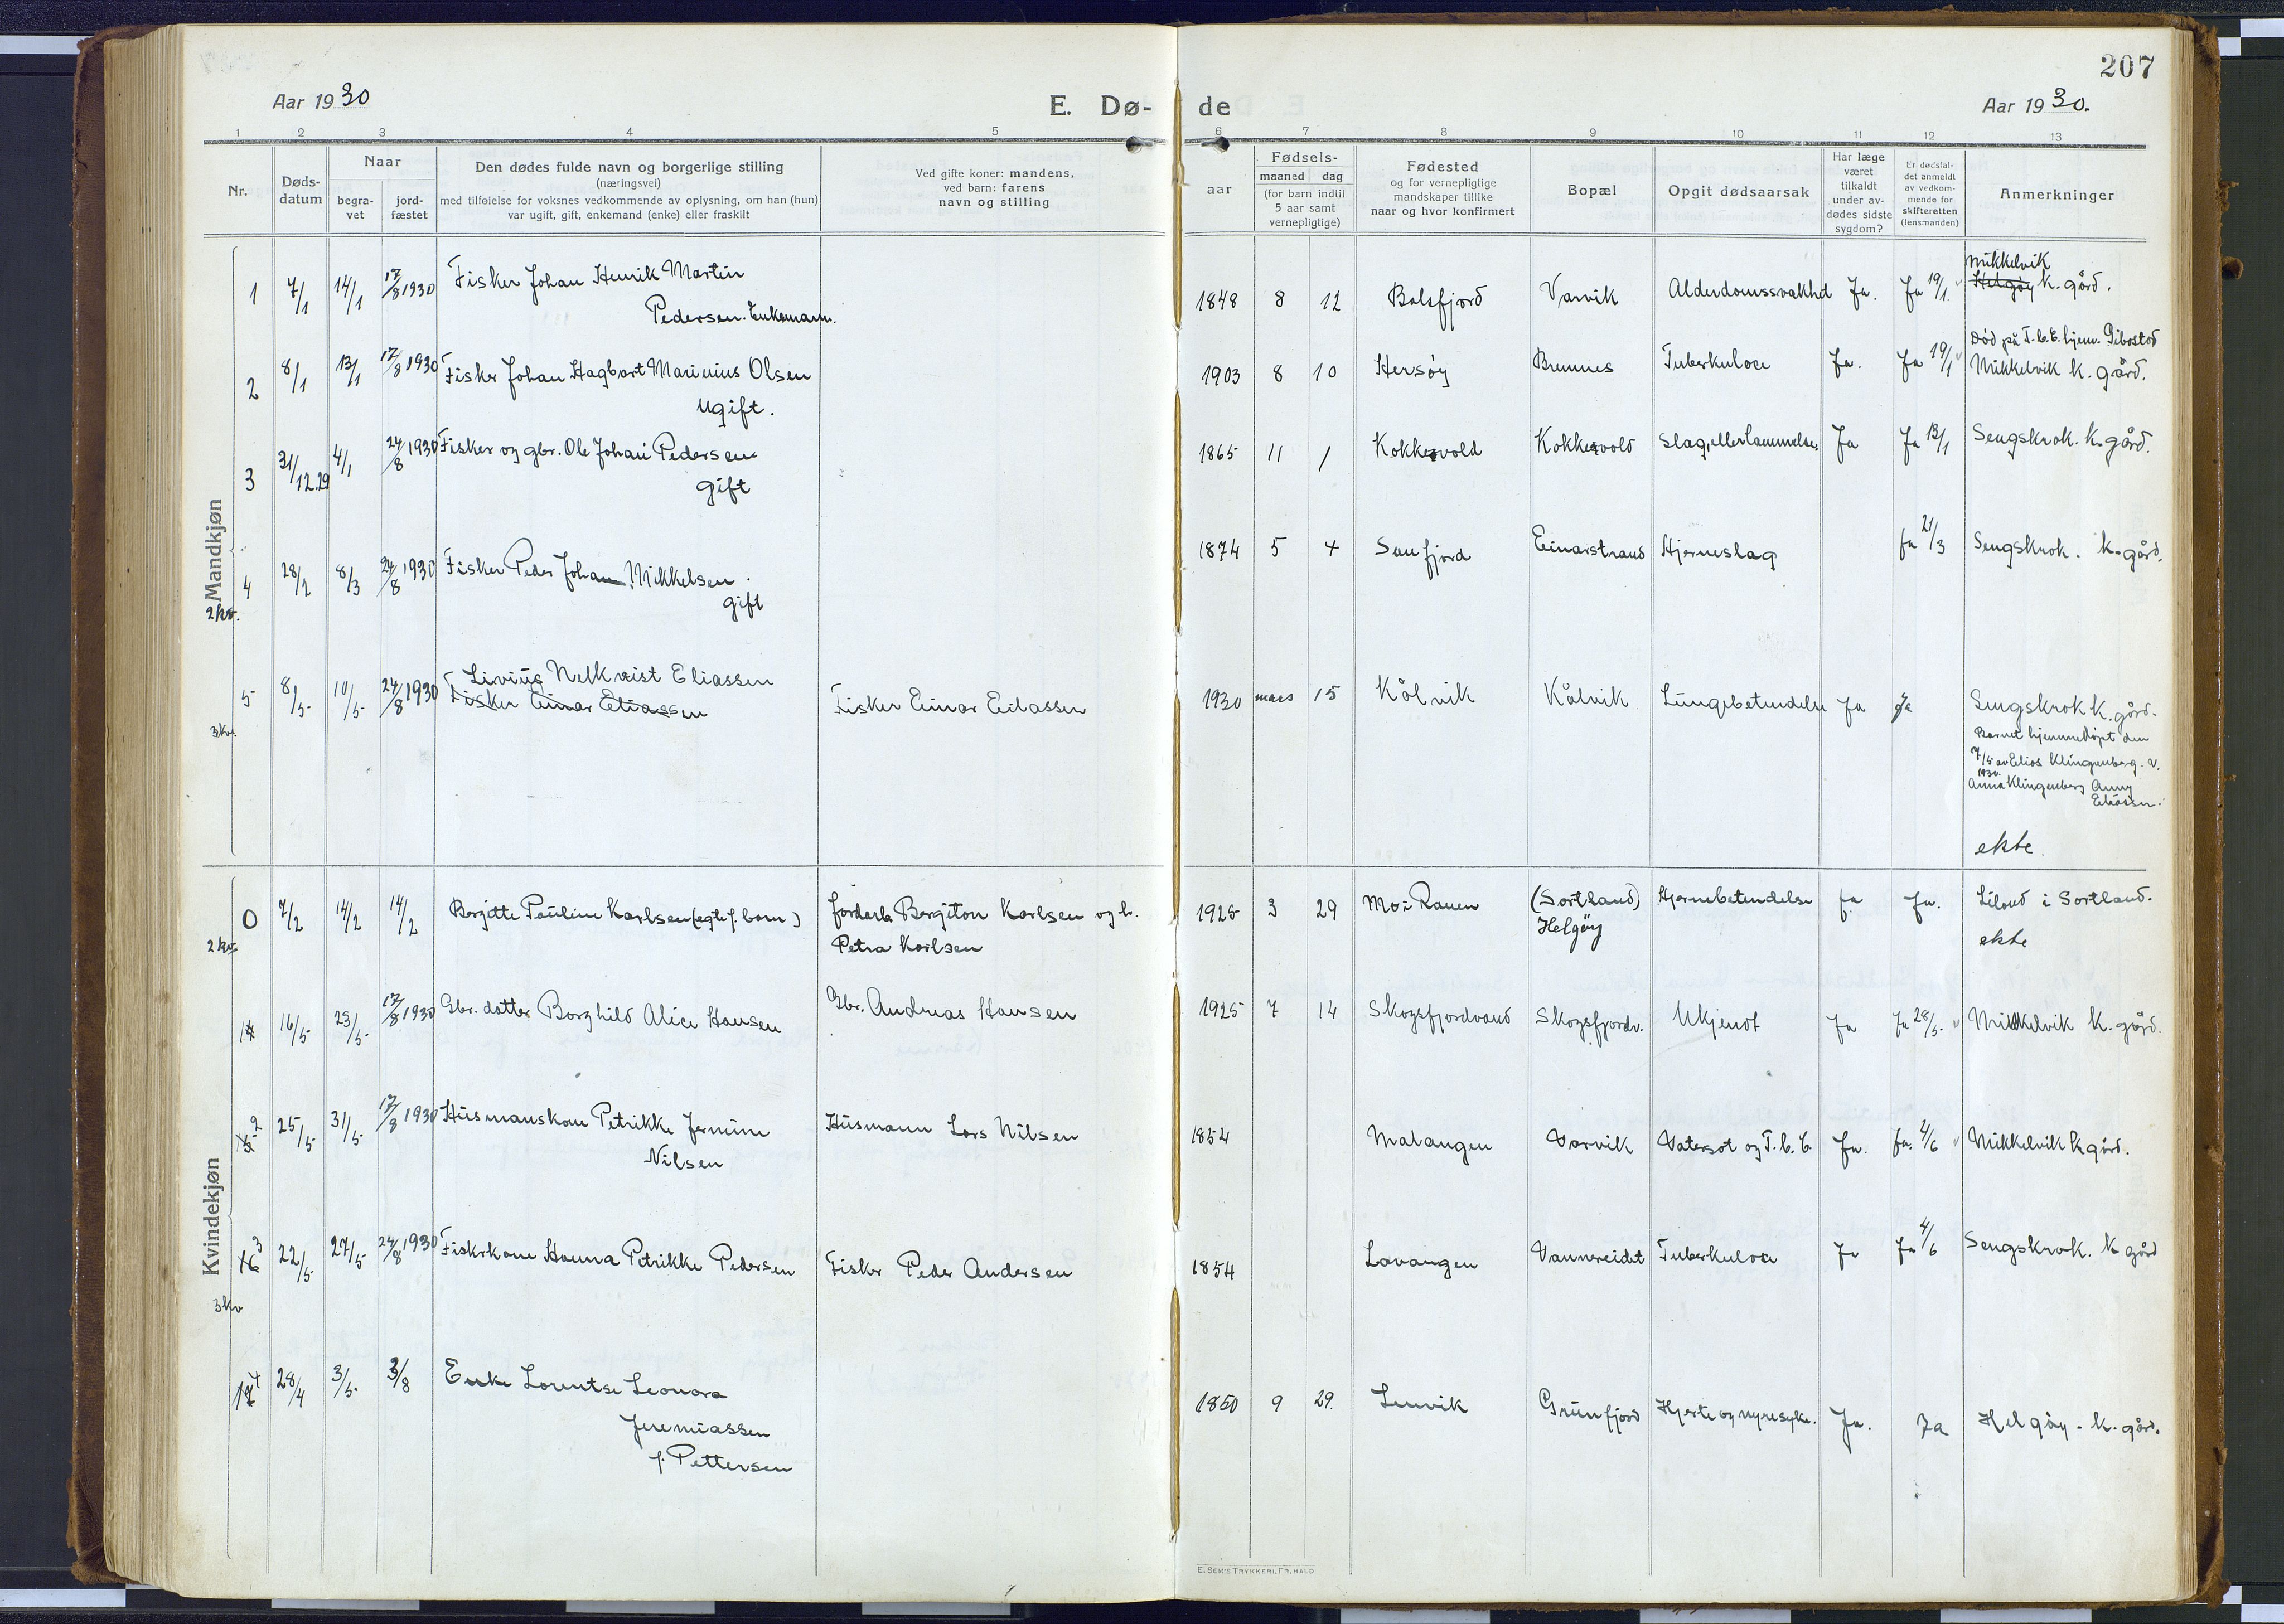 207
Aar 1930
E. Dø-
de
Aar 1930.
1 2 3 4 5 6 7 8 9 10 11 12 13
Nr.
Døds-
datum
Naar
begra-
vet
jord-
fæstet
Den dødes fulde navn og borgerlige stilling
(næringsvei)
med tilføielse for voksnes vedkommende av oplysning, om han (hun)
var ugift, gift, enkemand (enke) eller fraskilt
Ved gifte koner: mandens,
ved barn: farens
navn og stilling
aar
Fødsels-
maaned dag
(for barn indtil
5 aar samt
vernepligtige)
Fødested
og for vernepligtige
mandskaper tillike
naar og hvor konfirmert
Bopæl
Opgit dødsaarsak
Har læge
været
tilkaldt
under av-
dødes sidste
sygdom?
Er dødsfal-
det anmeldt
av vedkom-
mende for
skifteretten
(lensmanden)
Anmerkninger
Mandkjøn
1 7/1 14/1 17/8 1930 Fisker Johan Henrik Martin
Pedersen. Enkemann.
1848 8 12 Balsfjord Varvik Alderdomssvakhet Ja. Ja 19/1 Mikkelvik
Helgøy k. gård.
2 8/1 13/1 17/8 1930 Fisker Johan Hagbart Marinius Olsen
ugift.
1903 8 10 Hersøy Bremnes Tuberkulose Ja. Ja 19/1 Død på T.b.C. hjem. Gibostad
Mikkelvik k. gård.
3 31/12.29 4/1 24/8 1930 Fisker og gbr. Ole Johan Pedersen
gift
1865 11 1 Kokkesvold Kokkesvold Slag, eller lammelse. Ja Ja 13/1 Sengskrok. k. gård.
2 kv.
4 28/2 8/3 24/8 1930 Fisker Peder Johan Mikkelsen.
gift
1874 5 4 Sanfjord Einarstrand Hjerneslag Ja 21/3 Sengskrok. k. gård.
3 kv.
5 8/5 10/5 24/8 1930 Livius Nelkvist Eliassen
Fisker Einar Eliassen
Fisker Einar Eilassen
1930 mars 15 Kålvik Kålvik Lungebetendelse Ja Ja Sengskrok k. gård.
Barnet hjemmedøpt den
7/5 av Elias Klingenberg. v.
1930.
Anna Klingenberg Anny
Eliassen.
ekte.
Kvindekjøn
2 kv.
0 7/2 14/2 14/2 Borgitte Pauline Karlsen (egtef. barn)
Jordarb. Bergiton Karlsen og h.
Petra Karlsen
1925 3 29 Mo i Ranen (Sortland)
Helgøy
Hjernebetendelse Ja Ja. Liland i Sortland.
ekte
1 16/5 23/5 17/8 1930 Gbr. datter Borghild Alice Hansen
Gbr. Andreas Hansen
1925 7 14 Skogsfjordvand Skogsfjordv. Ukjendt Ja Ja 28/5 Mikkelvik k. gård.
2 25/5 31/5 17/8 1930 Husmanskone Petrikke Jernine
Nilsen
Husmann Lars Nilsen
1854 Malangen Varvik Vatersot og T.b.C. Ja. Ja. 4/6 Mikkelvik k. gård.
3 22/5 27/5 24/8 1930 Fiskerkone Hanna Petrikke Pedersen
Fisker Peder Andersen
1854 Lavangen Vannereidet Tuberkulose Ja Ja 4/6 Sengskrok. k gård
3 kv
4 28/4 3/5 3/8 Enke Lorentse Leonora
Jeremiassen
f. Pettersen
1850 9 29. Lenvik Grunfjord Hjerte og nyresyke. Ja. Ja Helgøy - k. gård.
E. Sem's Trykkeri, Fr.hald